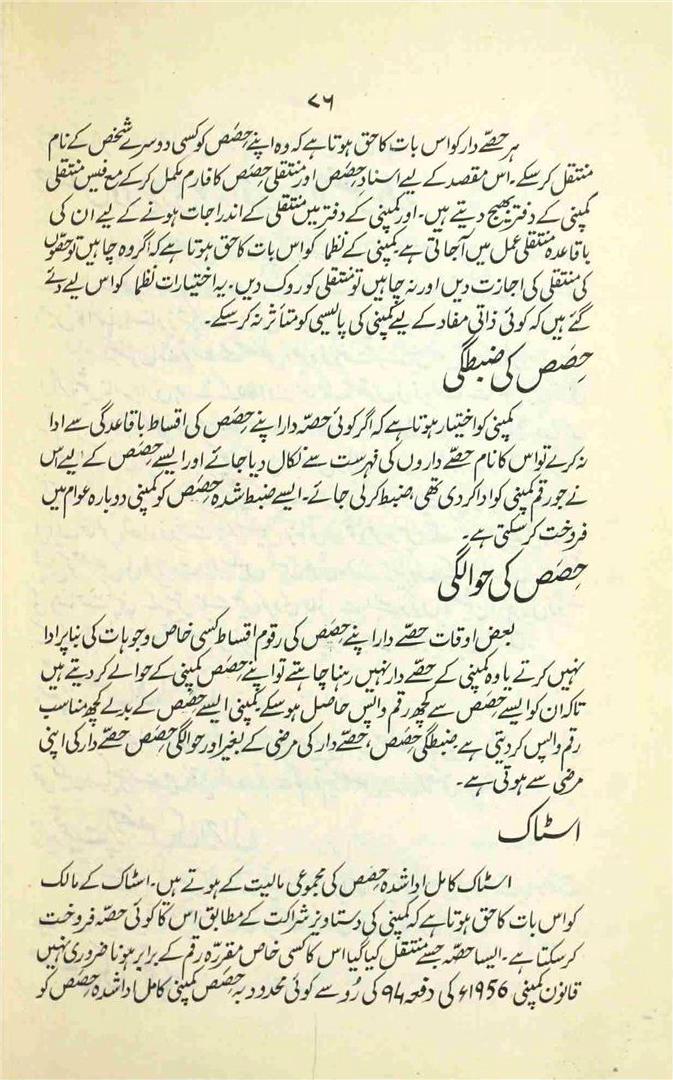 ۷۶
ہر حصّے دار کو اس بات کا حق ہوتا ہے کہ وہ اپنے حِصَص کو کسی دوسرے شخص کے نام
منتقل کر سکے۔ اس مقصد کے لیے اسنادِ حِصَص اور منتقلی حِصَص کا فارم مکمل کر کے مع فیس منتقلی
کمپنی کے دفتر بھیج دیتے ہیں۔ اور کمپنی کے دفتر میں منتقلی کے اندراجات ہونے کے لیے ان کی
باقاعدہ منتقلی عمل میں آجاتی ہے۔ کمپنی کے نظما کو اس بات کا حق ہوتا ہے کہ اگر وہ چاہیں تو حصّوں
کی منتقلی کی اجازت دیں اور نہ چاہیں تو منتقلی کو روک دیں۔ یہ اختیارات نظما کو اس لیے دئے
گئے ہیں کہ کوئی ذاتی مفاد کے لیے کمپنی کی پالیسی کو متأثر نہ کر سکے۔
حِصَص کی ضبطگی
کمپنی کو اختیار ہوتا ہے کہ اگر کوئی حصّہ دار اپنے حِصَص کی اقساط باقاعدگی سے ادا
نہ کرے تو اس کا نام حصّے داروں کی فہرست سے نکال دیا جائے اور ایسے حِصَص کے لیے اس
نے جو رقم کمپنی کو ادا کر دی تھی، ضبط کرلی جائے۔ ایسے ضبط شدہ حِصَص کو کمپنی دوبارہ عوام میں
فروخت کر سکتی ہے۔
حِصَص کی حوالگی
بعض اوقات حصّے دار اپنے حِصَص کی رقوم اقساط کسی خاص وجوہات کی بنا پر ادا
نہیں کرتے یا وہ کمپنی کے حصّے دار نہیں رہنا چاہتے تو اپنے حِصَص کمپنی کے حوالے کر دیتے ہیں
تاکہ ان کو ایسے حِصَص سے کچھ رقم واپس حاصل ہو سکے۔ کمپنی ایسے حِصَص کے بدلے کچھ مناسب
رقم واپس کر دیتی ہے۔ ضبطگی حِصَص، حصّے دار کی مرضی کے بغیر اور حوالگی حِصَص حصّے دار کی اپنی
مرضی سے ہوتی ہے۔
اسٹاک
اسٹاک کامل ادا شدہ حِصَص کی مجموعی مالیت کے ہوتے ہیں۔ اسٹاک کے مالک
کو اس بات کا حق ہوتا ہے کہ کمپنی کی دستاویز شراکت کے مطابق اس کا کوئی حصّہ فروخت
کر سکتا ہے۔ ایسا حصّہ جسے منتقل کیا گیا اس کا کسی خاص مقررّہ رقم کے برابر ہونا ضروری نہیں
قانون کمپنی 1956ء کی دفعہ ۹۴ کی رُو سے کوئی محدود بہ حِصَص کمپنی کامل ادا شدہ حِصَص کو